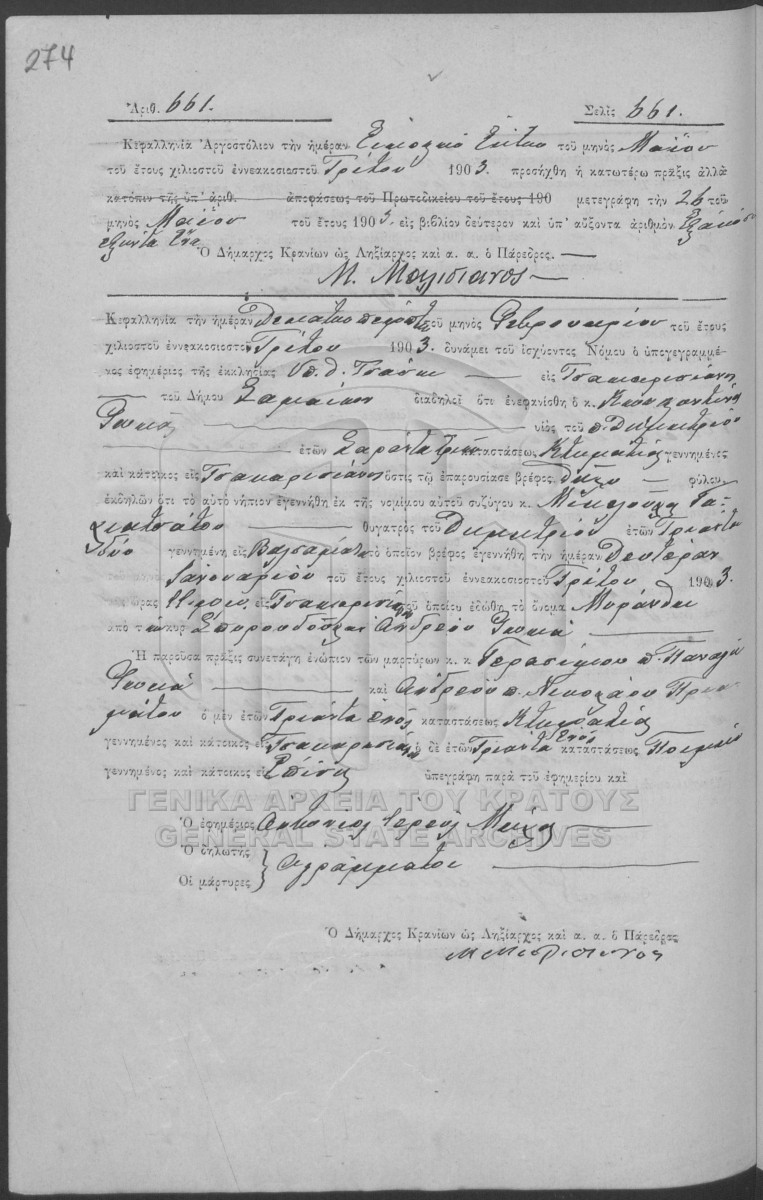 274
Ἀριθ. 661. Σελὶς 661.
Κεφαλληνία Ἀργοστόλιον τὴν ἡμέραν Εἰκοστὴν Ἕκτην τοῦ μηνὸς Μαΐου
τοῦ ἔτους χιλιοστοῦ ἐννεακοσιοστοῦ Τρίτου 1903. προσήχθη ἡ κατωτέρω πρᾶξις ἀλλὰ
κατόπιν τῆς ὑπ' ἀριθ. ἀποφάσεως τοῦ Πρωτοδικείου τοῦ ἔτους 190 μετεγράφη τὴν 26 τοῦ
μηνὸς Μαΐου τοῦ ἔτους 1903. εἰς βιβλίον δεύτερον καὶ ὑπ' αὔξοντα ἀριθμὸν Ἑξακόσια
ἑξήντα ἕνα
Ὁ Δήμαρχος Κρανίων ὡς Ληξίαρχος καὶ α. α. ὁ Πάρεδρος.
Μ.
Κεφαλληνία τὴν ἡμέραν Δεκάτην πέμπτην τοῦ μηνὸς Φεβρουαρίου τοῦ ἔτους
χιλιοστοῦ ἐννεακοσιοστοῦ Τρίτου 1903. δυνάμει τοῦ ἰσχύοντος Νόμου ὁ ὑπογεγραμμέ-
νος ἐφημέριος τῆς ἐκκλησίας εἰς Τσακαρισιάνον
τοῦ Δήμου Σαμαίων διαδηλοῖ ὅτι ἐνεφανίσθη ὁ κ. Κωνσταντῖνος
Φωκᾶς υἱὸς τοῦ π. Δημητρίου
ἐτῶν Σαράντα τριῶν καταστάσεως Κτηματίας γεννημένος
καὶ κάτοικος εἰς Τσακαρισιάνον ὅστις τῷ ἐπαρουσίασε βρέφος θῆλυ φύλου
ἐκδηλῶν ὅτι τὸ αὐτὸ νήπιον ἐγεννήθη ἐκ τῆς νομίμου αὐτοῦ συζύγου κ.
θυγατρὸς τοῦ Δημητρίου ἐτῶν Τριάντα
δύο γεννημένη εἰς Βαλσαμάτα τὸ ὁποῖον βρέφος ἐγεννήθη τὴν ἡμέραν Δευτέραν
Ἰανουαρίου τοῦ ἔτους χιλιοστοῦ ἐννεακοσιοστοῦ Τρίτου 1903.
ὥρας εἰς Τσακαρισιάνον τοῦ ὁποίου ἐδώθη τὸ ὄνομα Μυράνθη
ἀπὸ τὸν κύρ Ἀνδρέου Φωκᾶ
Ἡ παροῦσα πρᾶξις συνετάγη ἐνώπιον τῶν μαρτύρων κ. κ. Γερασίμου π. Παναγῆ
Φωκᾶ καὶ Ἀνδρέου π. Νικολάου
ὁ μὲν ἐτῶν Τριάντα ἑνὸς καταστάσεως Κτηματίας
γεννημένος καὶ κάτοικος εἰς Τσακαρισιάνον ὁ δὲ ἐτῶν Τριάντα ἑνὸς καταστάσεως Ποιμὴν
γεννημένος καὶ κάτοικος εἰς ὑπεγράφη παρὰ τοῦ ἐφημερίου καὶ
ΓΕΝΙΚΑ ΑΡΧΕΙΑ ΤΟΥ ΚΡΑΤΟΥΣ
Ὁ ἐφημέριος Ἀντώνιος ἱερεὺς
GENERAL STATE ARCHIVES
Ὁ δηλωτὴς
Οἱ μάρτυρες } Ἀγράμματοι
Ὁ Δήμαρχος Κρανίων ὡς Ληξίαρχος καὶ α. α. ὁ Πάρεδρος
Μ